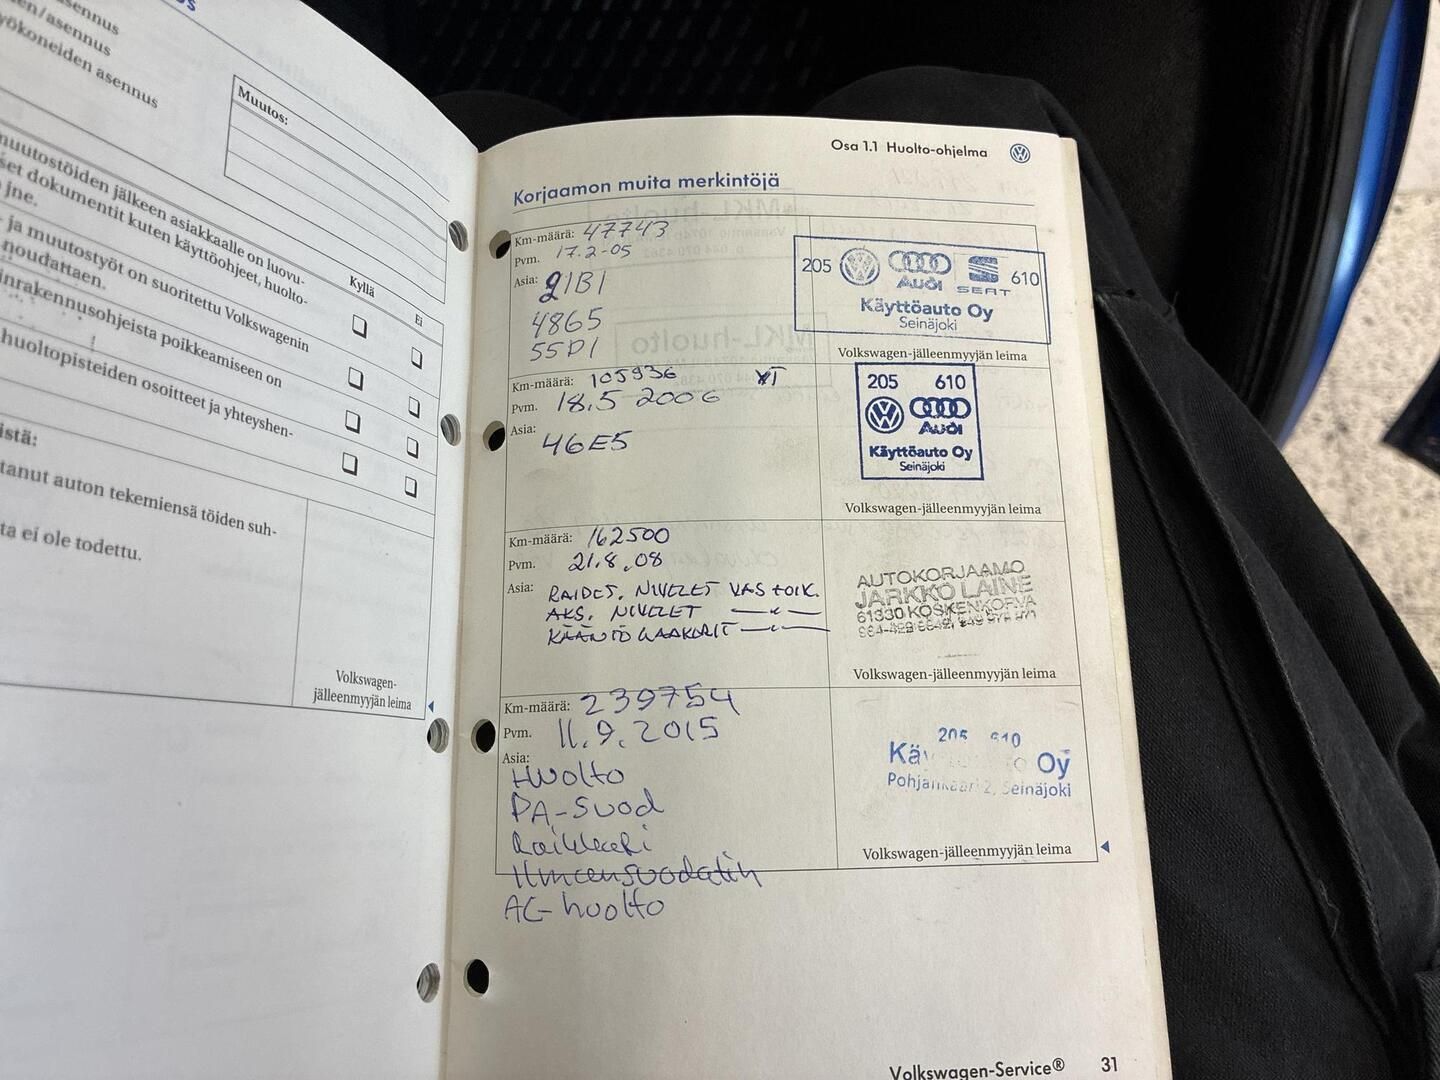 asennus
en/asennus
yökoneiden asennus
Muutos:
muutostöiden jälkeen asiakkaalle on luovu-
set dokumentit kuten käyttöohjeet, huolto-
jne.
Kyllä
Ei
- ja muutostyöt on suoritettu Volkswagenin
noudattaen.
inrakennusohjeista poikkeamiseen on
huoltopisteiden osoitteet ja yhteyshen-
istä:
tanut auton tekemiensä töiden suh-
ta ei ole todettu.
Volkswagen-
jälleenmyyjän leima
Osa 1.1 Huolto-ohjelma
Korjaamon muita merkintöjä
Km-määrä: 47743
Pvm. 17.2-05
Asia: 21B1
4865
55D1
205 Audi SEAT 610
Käyttöauto Oy
Seinäjoki
Volkswagen-jälleenmyyjän leima
Km-määrä: 105936
Pvm. 18.5 2006
Asia: 46E5
205 610
Audi
Käyttöauto Oy
Seinäjoki
Volkswagen-jälleenmyyjän leima
Km-määrä: 162500
Pvm. 21.8.08
Asia: RAIDET. NIVELET VAS + OIK.
AKS. NIVELET
KÄÄNTÖLAAKERIT
AUTOKORJAAMO
JARKKO LAINE
61330 KOSKENKORVA
Volkswagen-jälleenmyyjän leima
Km-määrä: 239754
Pvm. 11.9.2015
Asia:
Huolto
PA-suod
Raikkari
Ilmansuodatin
AC-huolto
205 610
Oy
Seinäjoki
Volkswagen-jälleenmyyjän leima
Volkswagen-Service® 31